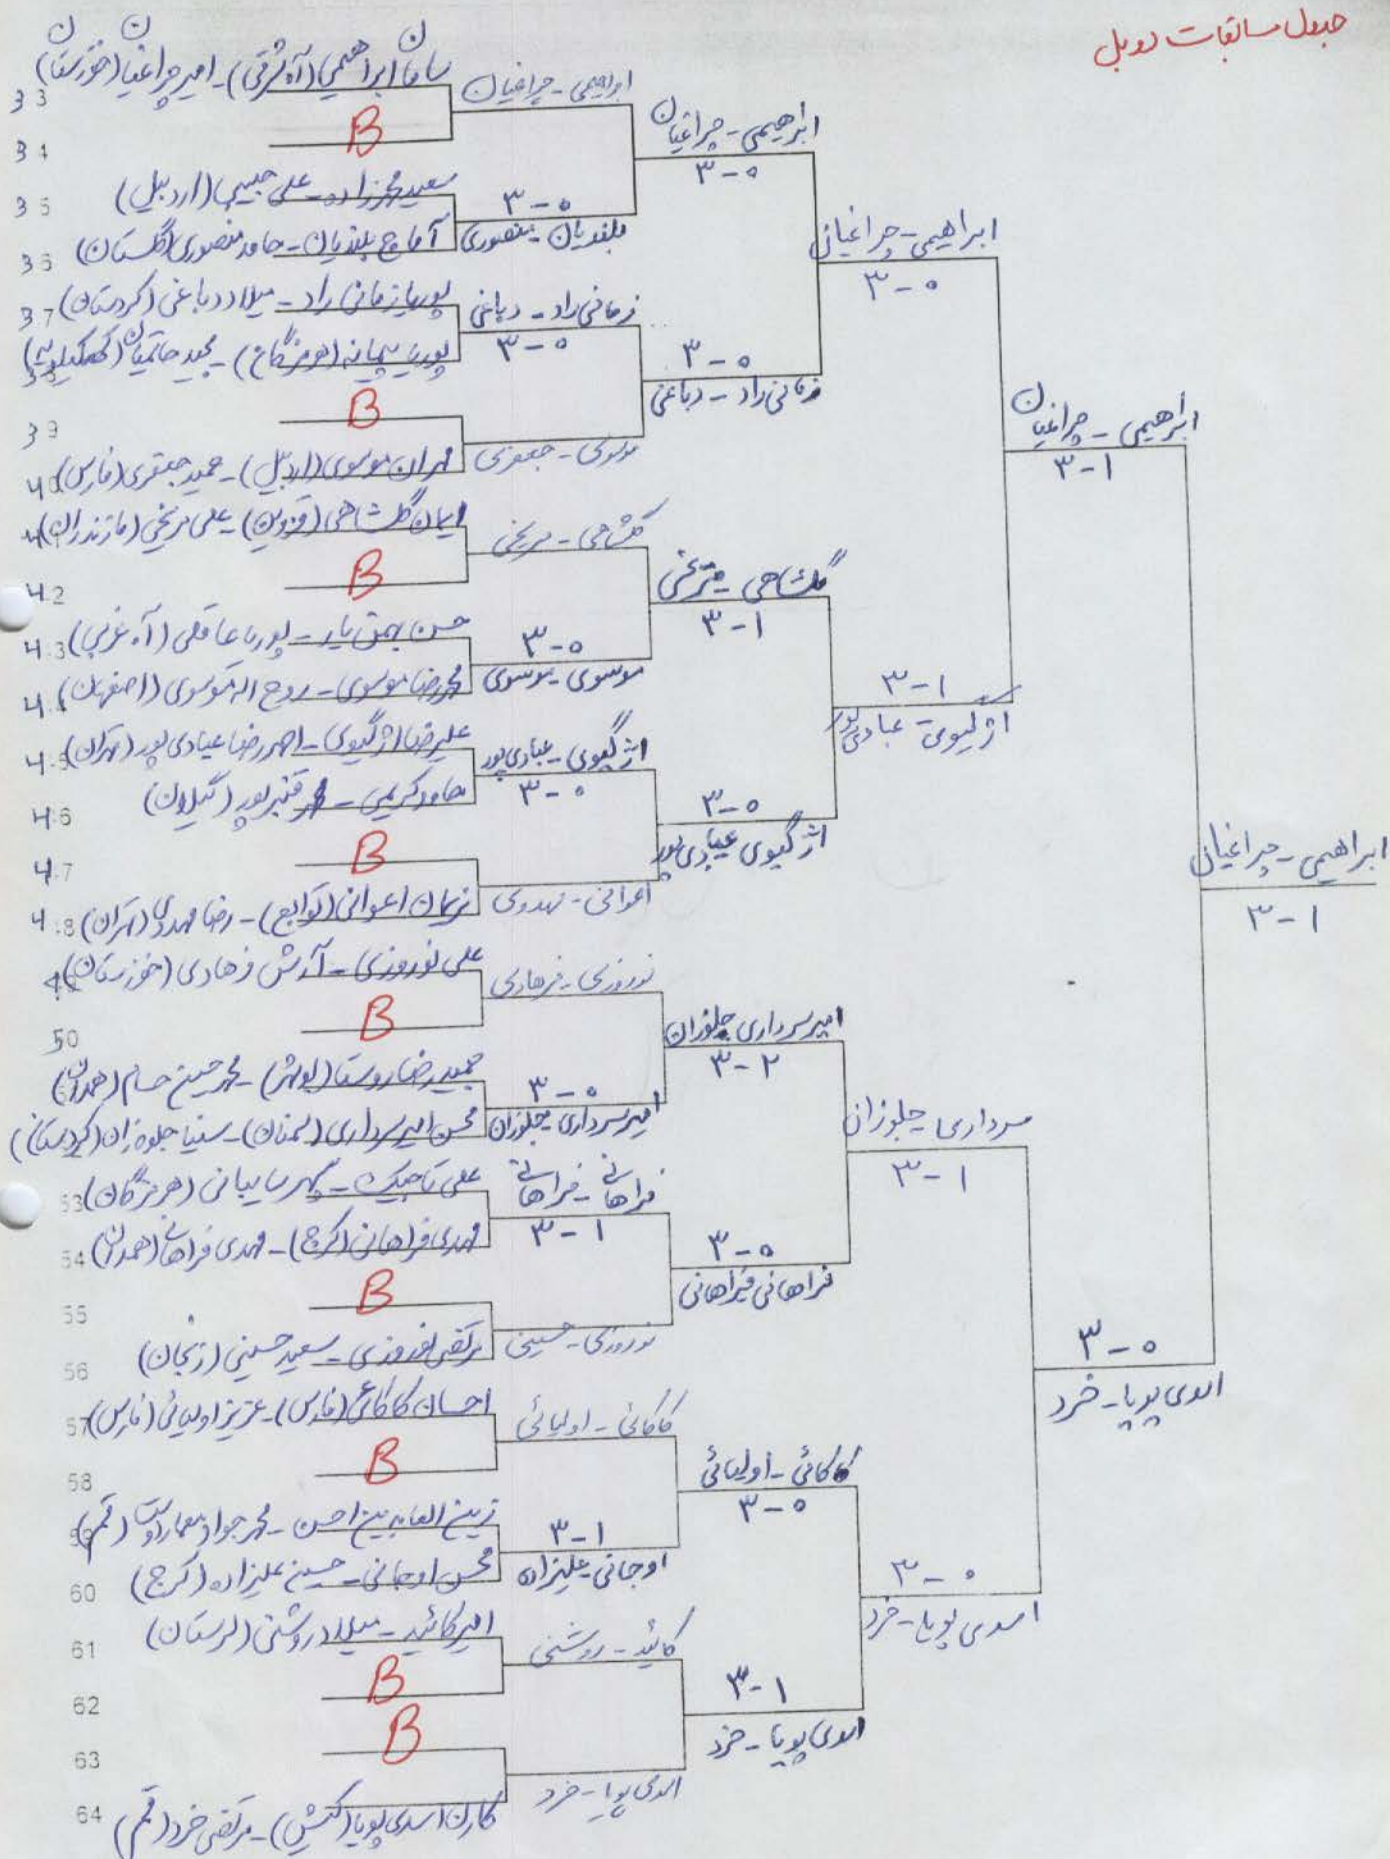 جدول مسابقات دوبل
33 سامان ابراهیمی (آذ شرقی) - امیر چراغیان (خوزستان)
34 B
35 سعید محرزاده - علی حبیبی (اردبیل)
36 آماج بلندیان - حامد منصوری (گلستان)
37 پوریا زمانی راد - میلاد دباغی (کردستان)
پوریا پیمانه (هرمزگان) - مجید حاتمیان (کهگیلویه)
39 B
40 مهران موسوی (اردبیل) - حمید جعفری (فارس)
41 ایمان گلشاهی (قزوین) - علی مریخی (مازندران)
42 B
43 حسن بهمن یار - پوریا عاقلی (آذ غربی)
44 محمدرضا موسوی - روح اله موسوی (اصفهان)
45 علیرضا اژگیوی - احمدرضا عبادی پور (تهران)
46 حامد کریمی - قنبرپور (گیلان)
47 B
48 نریمان اعوانی (توابع) - رضا مهدوی (تهران)
49 علی نوروزی - آرش فرهادی (خوزستان)
50 B
حمیدرضا روستا (بوشهر) - محمدحسین حسام (همدان)
محسن امیرسرداری (سمنان) - سینا جلوزان (کردستان)
53 علی تاجیک - سایبانی (هرمزگان)
54 مهدی فراهانی (کرج) - مهدی فراهانی (همدان)
55 B
56 مرتضی نوروزی - سعید حسینی (زنجان)
57 احسان کاکائی (فارس) - عزیز اولیائی (فارس)
58 B
59 زین العابدین احسن - محمدجواد معماردوست (قم)
60 محسن اوجانی - حسین علیزاده (کرج)
61 امیر کائید - میلاد روشنی (لرستان)
62 B
63 B
64 کارن اسدی پویا (کیش) - مرتضی خرد (قم)
ابراهیمی - چراغیان
۳-۰
بلندیان - منصوری
زمانی راد - دباغی
۳-۰
موسوی - جعفری
گلشاهی - مریخی
۳-۰
موسوی - موسوی
اژگیوی - عبادی پور
۳-۰
اعوانی - مهدوی
نوروزی - فرهادی
۳-۰
امیرسرداری - جلوزان
فراهانی - فراهانی
۳-۱
نوروزی - حسینی
کاکائی - اولیائی
۳-۱
اوجانی - علیزاده
کائید - روشنی
اسدی پویا - خرد
ابراهیمی - چراغیان
۳-۰
۳-۰
زمانی راد - دباغی
گلشاهی - مریخی
۳-۱
۳-۰
اژگیوی عبادی پور
امیرسرداری جلوزان
۳-۲
۳-۰
فراهانی فراهانی
کاکائی - اولیائی
۳-۰
۳-۱
اسدی پویا - خرد
ابراهیمی - چراغیان
۳-۰
۳-۱
اژگیوی - عبادی پور
سرداری - جلوزان
۳-۱
۳-۰
اسدی پویا - خرد
ابراهیمی - چراغیان
۳-۱
۳-۰
اسدی پویا - خرد
ابراهیمی - چراغیان
۳-۱